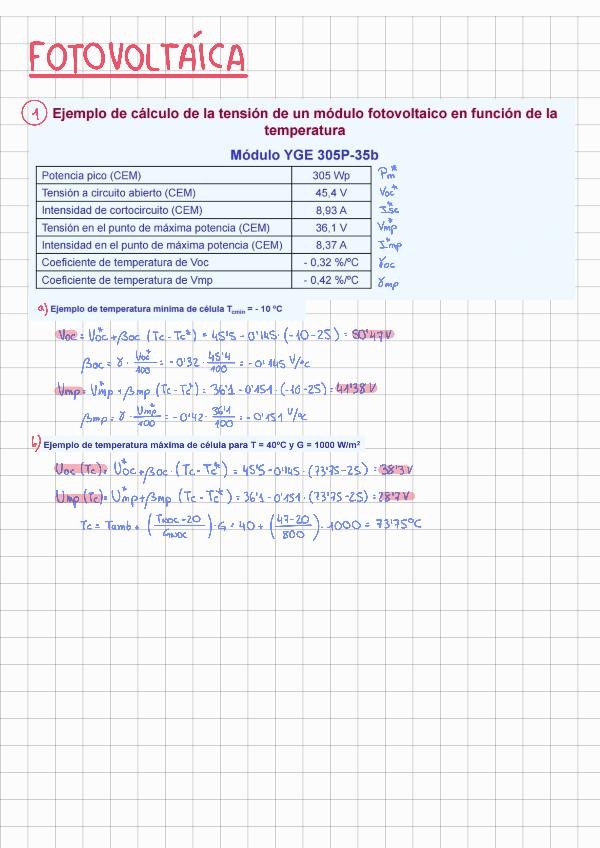 FOTOVOLTAÍCA
1 Ejemplo de cálculo de la tensión de un módulo fotovoltaico en función de la
temperatura
Módulo YGE 305P-35b
Potencia pico (CEM) 305 Wp Pm*
Tensión a circuito abierto (CEM) 45,4 V Voc*
Intensidad de cortocircuito (CEM) 8,93 A Isc*
Tensión en el punto de máxima potencia (CEM) 36,1 V Vmp*
Intensidad en el punto de máxima potencia (CEM) 8,37 A Imp*
Coeficiente de temperatura de Voc - 0,32 %/ºC γoc
Coeficiente de temperatura de Vmp - 0,42 %/ºC γmp
a) Ejemplo de temperatura mínima de célula Tcmin = - 10 ºC
Voc = Voc* + βoc (Tc - Tc*) = 45'5 - 0'145 · (-10-25) = 50'47V
βoc = γ · Voc*/100 = -0'32 · 45'4/100 = -0'145 V/ºc
Vmp = Vmp* + βmp (Tc - Tc*) = 36'1 - 0'151 · (-10-25) = 41'38V
βmp = γ · Vmp*/100 = -0'42 · 36'1/100 = -0'151 V/ºc
b) Ejemplo de temperatura máxima de célula para T = 40ºC y G = 1000 W/m²
Uoc (Tc) = Uoc* + βoc · (Tc - Tc*) = 45'5 - 0'145 · (73'75-25) = 38'3V
Ump (Tc) = Ump* + βmp (Tc - Tc*) = 36'1 - 0'151 · (73'75-25) = 28'7V
Tc = Tamb + (TNOC-20/GNOC) · G = 40 + (47-20/800) · 1000 = 73'75ºC